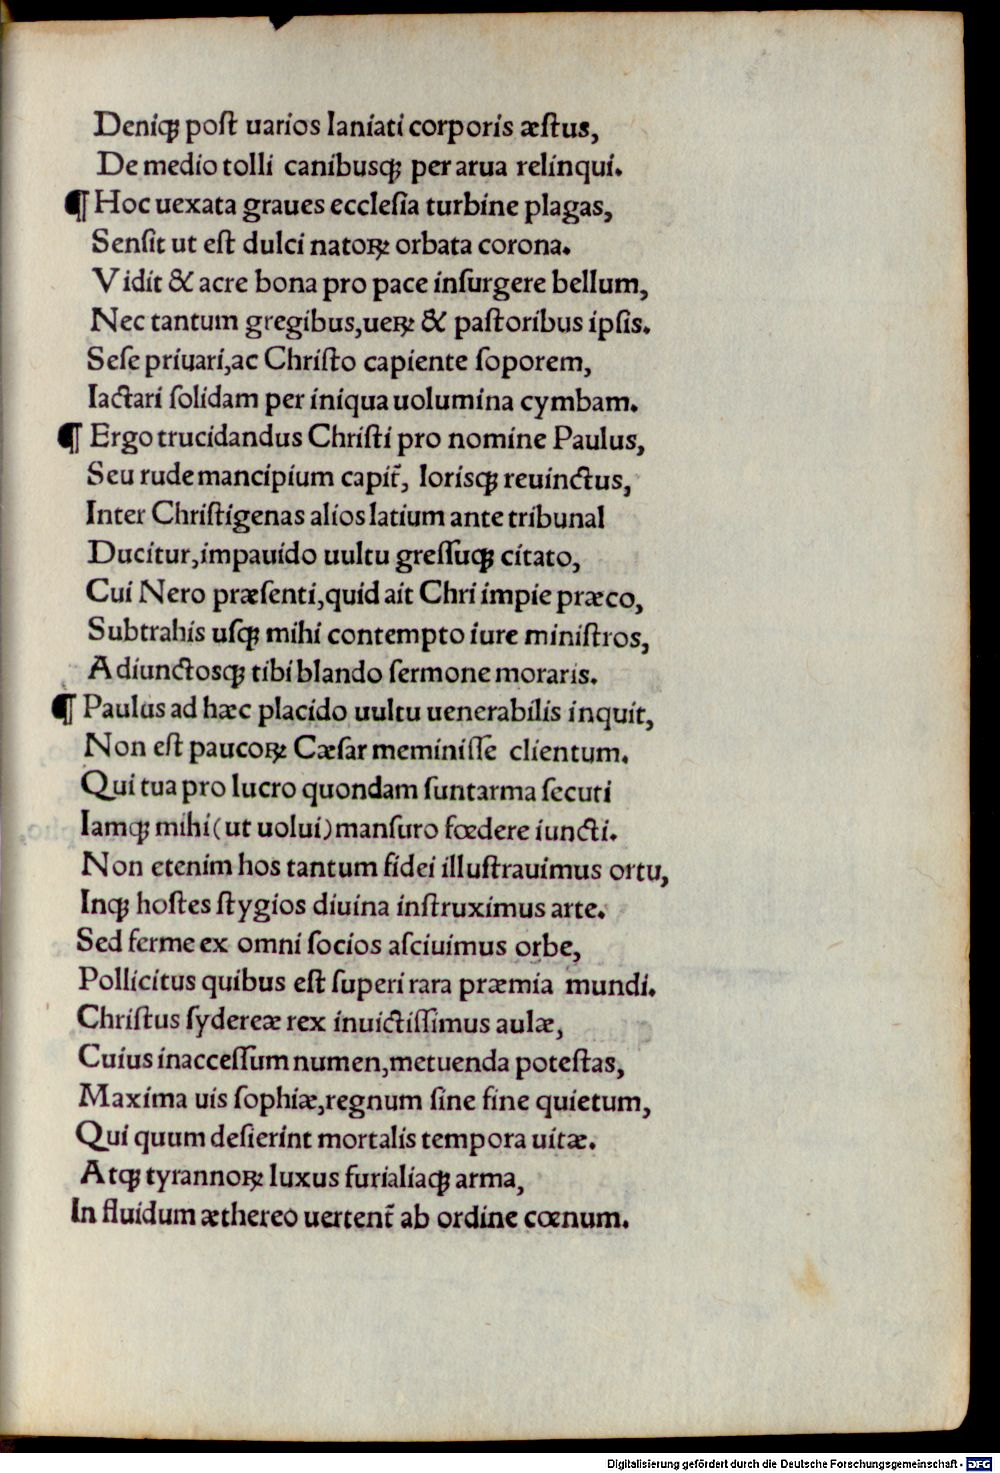 Deniqꝫ poſt uarios laniati corporis æſtus,
De medio tolli canibusqꝫ per arua relinqui.
¶ Hoc uexata graues eccleſia turbine plagas,
Senſit ut eſt dulci natoꝝ orbata corona.
Vidit & acre bona pro pace inſurgere bellum,
Nec tantum gregibus, ueꝝ & paſtoribus ipſis.
Seſe priuari, ac Chriſto capiente ſoporem,
Iactari ſolidam per iniqua uolumina cymbam.
¶ Ergo trucidandus Chriſti pro nomine Paulus,
Seu rude mancipium capit̃, lorisqꝫ reuinctus,
Inter Chriſtigenas alios latium ante tribunal
Ducitur, impauido uultu greſſuqꝫ citato,
Cui Nero præſenti, quid ait Chri impie præco,
Subtrahis uſqꝫ mihi contempto iure miniſtros,
Adiunctosqꝫ tibi blando ſermone moraris.
¶ Paulus ad hæc placido uultu uenerabilis inquit,
Non eſt paucoꝝ Cæſar meminiſſe clientum.
Qui tua pro lucro quondam ſunt arma ſecuti
Iamqꝫ mihi (ut uolui) manſuro fœdere iuncti.
Non etenim hos tantum fidei illuſtrauimus ortu,
Inqꝫ hoſtes ſtygios diuina inſtruximus arte.
Sed ferme ex omni ſocios aſciuimus orbe,
Pollicitus quibus eſt ſuperi rara præmia mundi.
Chriſtus ſydereæ rex inuictiſſimus aulæ,
Cuius inacceſſum numen, metuenda poteſtas,
Maxima uis ſophiæ, regnum ſine fine quietum,
Qui quum deſierint mortalis tempora uitæ.
Atqꝫ tyrannoꝝ luxus furialiaqꝫ arma,
In fluidum æthereo uertent̃ ab ordine cœnum.
Digitalisierung gefördert durch die Deutsche Forschungsgemeinschaft - DFG